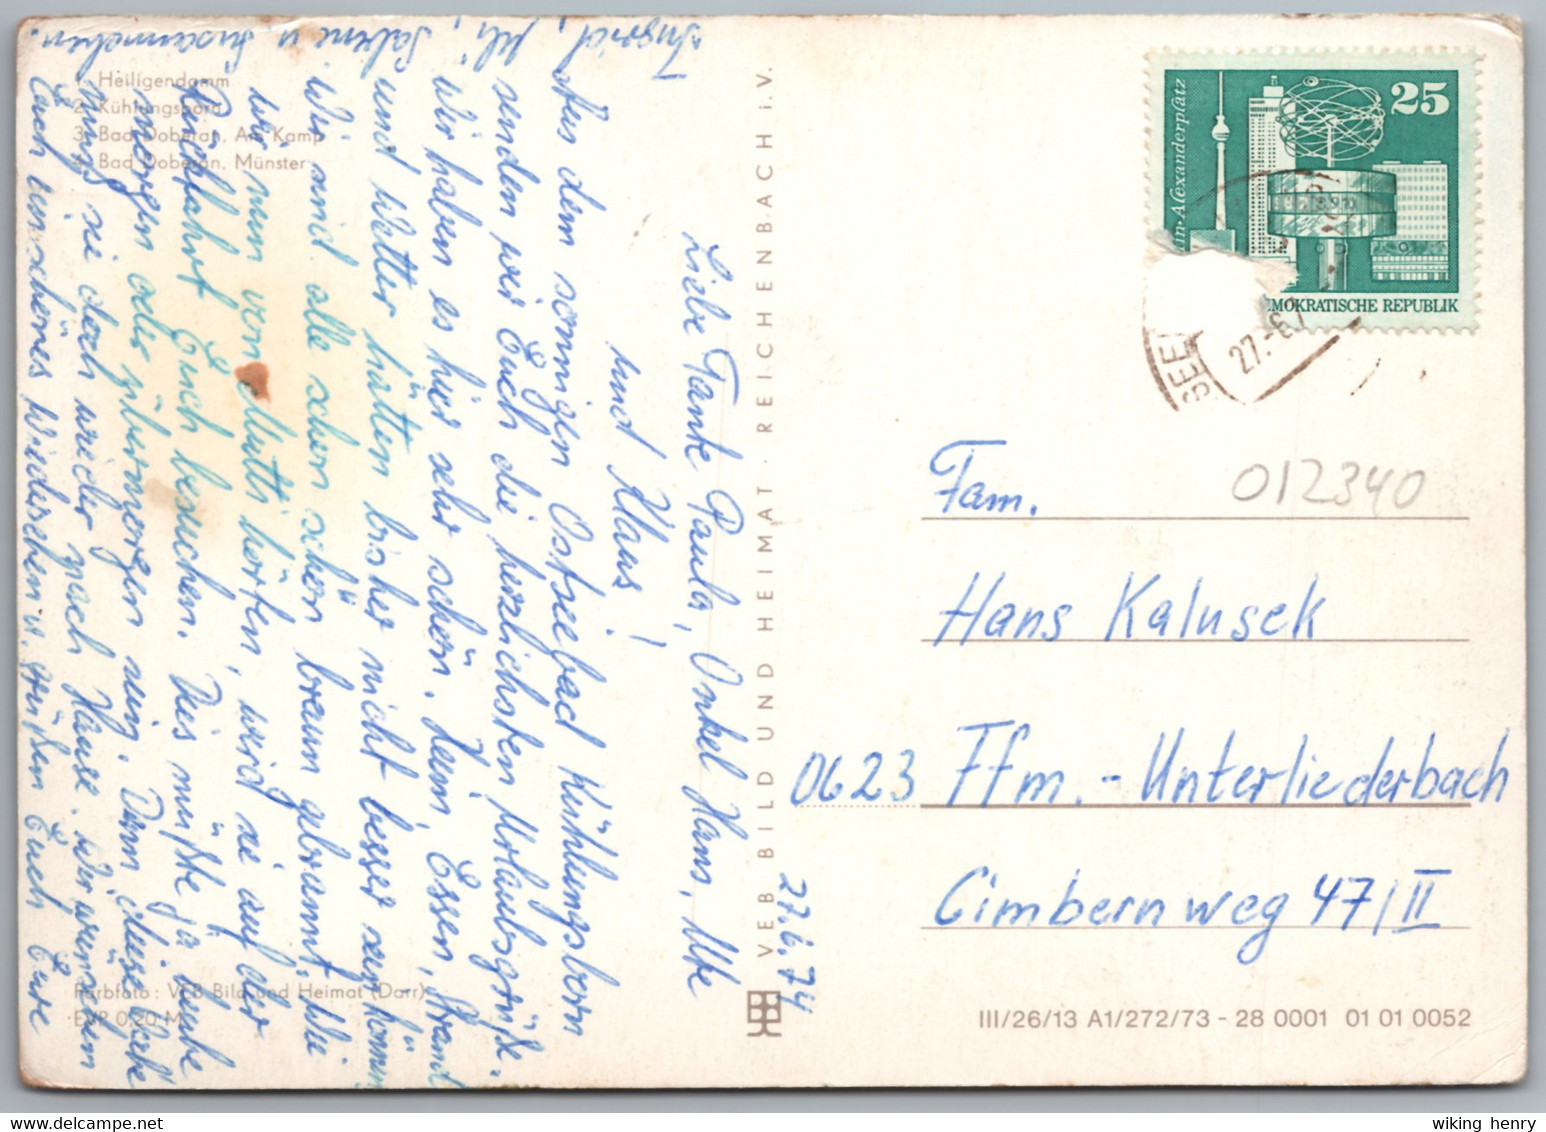 1. Heiligendamm
2. Kühlungsborn
3. Bad Doberan, Am Kamp
4. Bad Doberan, Münster
27.6.74
Liebe Tante Paula, Onkel Hans, Ute
und Klaus!
Aus dem sonnigen Ostseebad Kühlungsborn
senden wir Euch die herzlichsten Urlaubsgrüße.
Wir haben es hier sehr schön. Heim, Essen, Strand
und Wetter hätten bisher nicht besser sein können.
Wir sind alle schon schön braun gebrannt. Wie
wir nun von Mutti hörten, wird sie auf der
Rückfahrt Euch besuchen. Dies müßte ja heute
morgen oder übermorgen sein. Denn diese Woche
muß sie doch wieder nach Hause. Wir wünschen
Euch ein schönes Wiedersehen u. grüßen Euch Eure
Ingrid, Uli, Sabine u. Susannchen.
Farbfoto: VEB Bild und Heimat (Darr)
EVP 0,20 M
VEB BILD UND HEIMAT · REICHENBACH i. V.
25
MOKRATISCHE REPUBLIK
in-Alexanderplatz
SEE
27.-6.7
012340
Fam.
Hans Kalusek
0623 Ffm.-Unterliederbach
Cimbernweg 47/II
III/26/13 A1/272/73 - 28 0001 01 01 0052
wiking henry